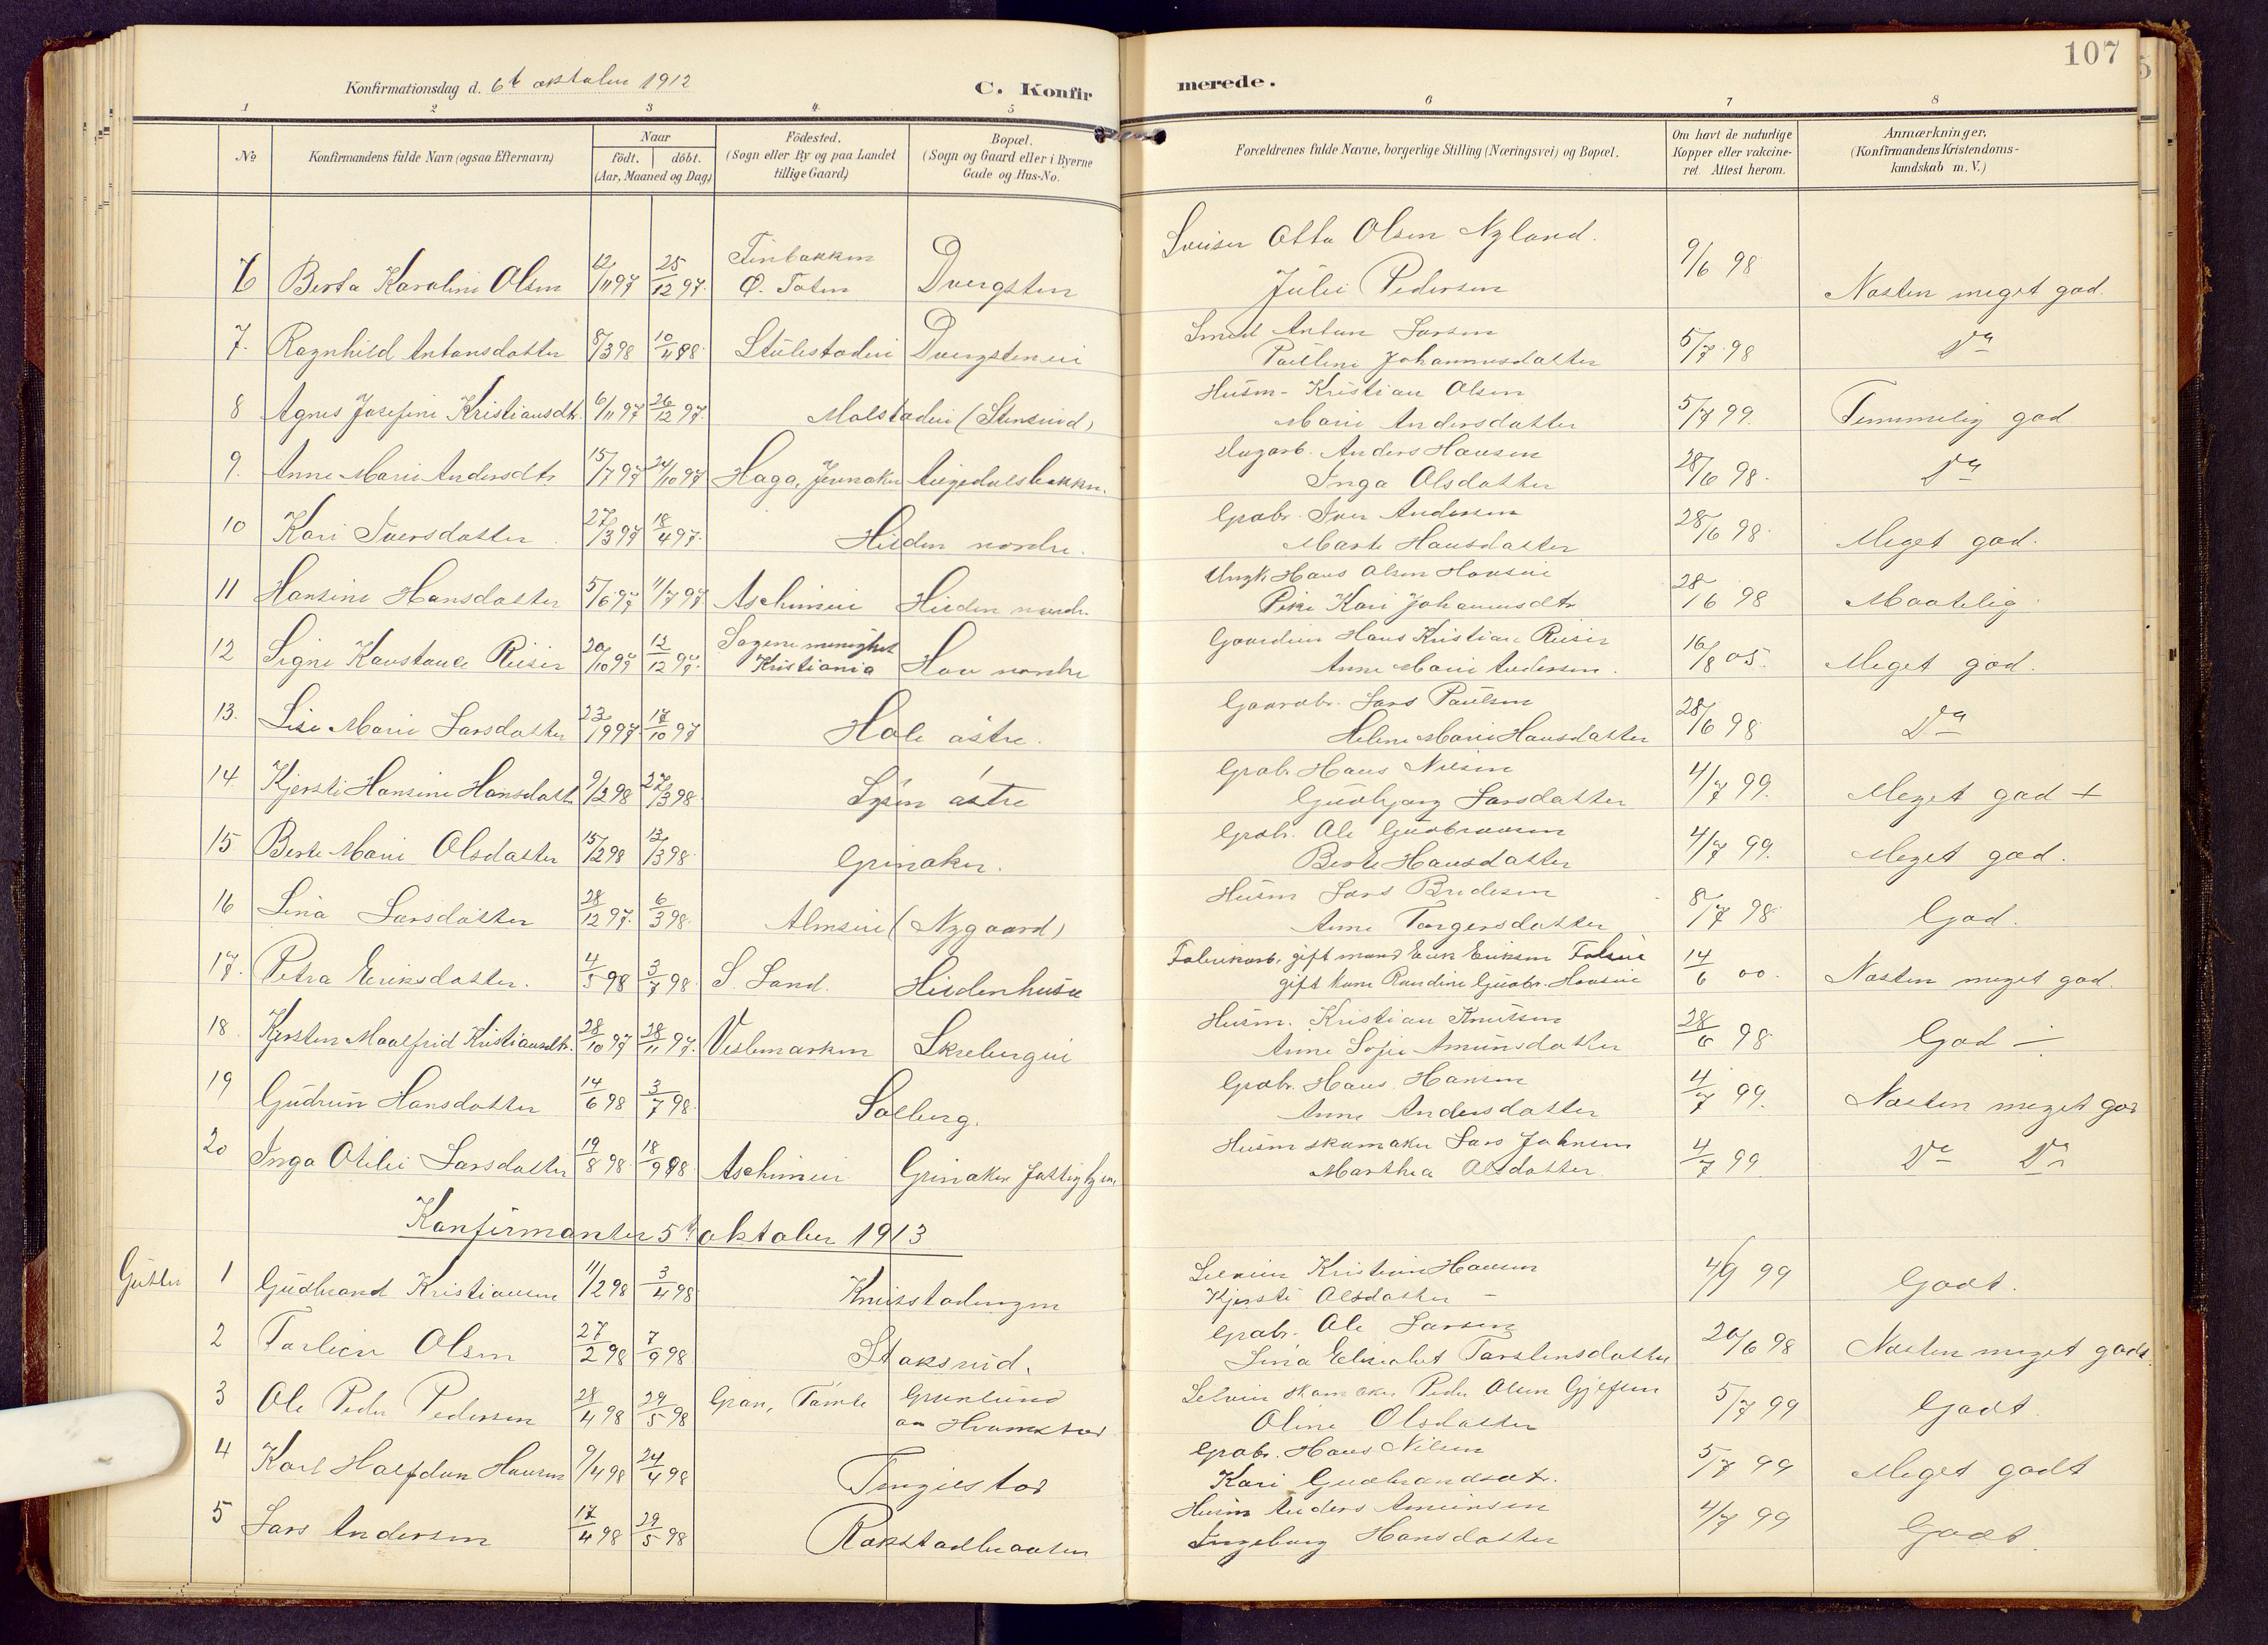 107
Konfirmationsdag d. 6t oktober 1912
C. Konfirmerede.
1 2 3 4 5 6 7 8
No
Konfirmandens fulde Navn (ogsaa Efternavn)
Naar
födt. döbt.
(Aar, Maaned og Dag)
Födested.
(Sogn eller By og paa Landet
tillige Gaard)
Bopæl.
(Sogn og Gaard eller i Byerne
Gade og Hus-No.
Forældrenes fulde Navne, borgerlige Stilling (Næringsvei) og Bopæl.
Om havt de naturlige
Kopper eller vakcine-
ret. Attest herom.
Anmærkninger,
(Konfirmandens Kristendoms-
kundskab m. V.)
6 Berta Karoline Olsen 12/11 97 25/12 97. Ø. Toten Dvergsten Otto Olsen Nyland. 9/6 98
Julie Pedersen Næsten meget god.
7. Ragnhild Antonsdatter 8/3 98 10/4 98. Dvergsteneie Smed Anton Larsen 5/7 98 Do
Pauline Johannesdatter
8 Agnes Josefine Kristiansdtr. 6/11 97 26/12 97. Molstadeie Husm. Kristian Olsen 5/7 99. Temmelig god
Marie Andersdatter
9. Anne Marie Andersdtr 15/7 97 24/10 97 Haga, Jevnaker Anders Hansen 28/6 98. Do
Inga Olsdatter
10 Kari Iversdatter 27/3 97 18/4 97. Hilden nordre. Grabr. Iver Andersen 28/6 98. Meget god.
Marte Hansdatter
11 Hansine Hansdatter 5/6 97 11/7 97 Aschimeie Hilden nordr. Ungk. Hans Olsen 28/6 98 Maatelig
Pike Kari Johannesdtr
12 Signe Konstance 20/10 97 12/12 97. Sagene menighet Kristiania nordre Hans Kristian 16/8 05. Meget god.
Anne Marie Andersen.
13. Lise Marie Larsdatter 23/9 97 17/10 97 Hole østre. Gaardbr. Lars Paulsen 28/6 98 Do
Helene Marie Hansdatter
14. Kjersti Hansine Hansdatt. 9/2 98 27/3 98. Lysen østre Grabr. Hans Nilsen 4/7 99. Meget god +
Gudbjørg Larsdatter
15 Berte Marie Olsdatter 15/2 98 13/3 98. Grinaker. Grabr. Ole Gudbransen 4/7 99. Meget god.
Berte Hansdatter
16 Lina Larsdatter 28/12 97. 6/3 98. Almseie (Nygaard) Husm Lars Bredesen 8/7 98. God.
Anne Torgersdatter
17. Petra Eriksdatter. 4/5 98 3/7 98. S. Land. Hildenhuse Fabrikarb. gift mand Erik Eriksen 14/6 00. Næsten meget god.
gift kone Randine Gudbr.
18. Kjersten Maalfrid Kristiansdtr. 28/10 97 28/11 97. Vestmarken Skrebergeie Husm. Kristian Knutsen 28/6 98 God ÷
Anne Sofie Amunsdatter
19 Gudrun Hansdatter 14/6 98 3/7 98. Solberg. Grabr. Hans Hansen 4/7 99. Næsten meget god
Anne Andersdatter
20 Inga Otilie Larsdatter 19/8 98 18/9 98 Aschimeie Grinaker fattighjem Husm skomaker Lars Johnsen 4/7 99 Do Do
Marthea Olsdatter
Konfirmanter 5t oktober 1913
Gutter 1 Gudbrand Kristiansen 11/2 98 3/4 98 Kristian Hansen 4/9 99 Godt.
Kjersti Olsdatter
2 Olsen 27/2 98 7/9 98 Staksrud. Grabr. Ole Larsen 20/6 98 Næsten meget godt.
Lina Elisabet Torstensdatter
3 Ole Peder Pedersen 28/4 98 29/5 98 Gran, Tømte Grønlund Peder Olsen Gjefsen 5/7 99 Godt
Oline Olsdatter
4 Karl Halfdan Hansen 9/4 98 24/4 98 Tingelstad Grabr. Hans Nilsen 5/7 99 Meget godt
Kari Gudbrandsdtr.
5 Lars Andersen 17/4 98 29/5 98 Rakstadbraaten Husm Anders Amunsen 4/7 99 Godt.
Ingeborg Hansdatter